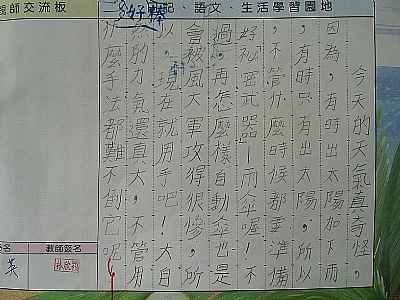 親師交流板
二、好棒 記、語文、生活學習園地
今天的天氣真奇怪，
因為，有時出太陽加下雨
，有時只有出太陽，所以
，不管什麼時候都要準備
好祕密武器—雨傘喔！不
過，再怎麼樣自動傘也是
會被風大軍攻得很慘，所
以，現在就用手吧！大自
然的力氣還真大，不管用
什麼手法都難不倒它呢！
教師簽名